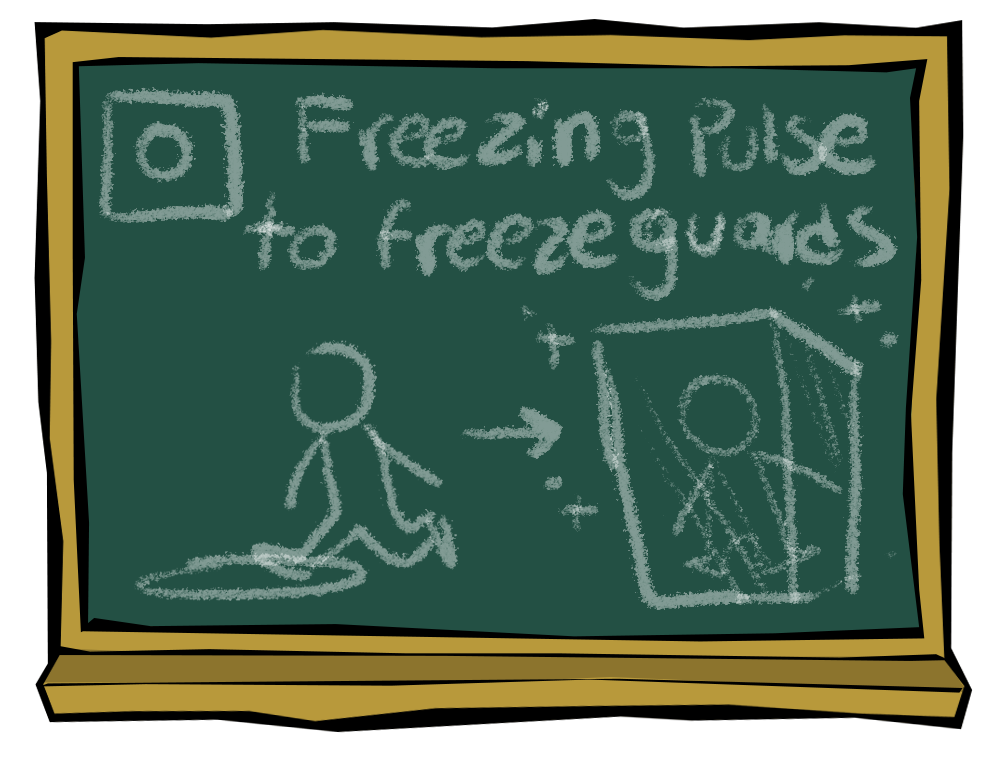 Freezing Pulse
to freeze guards